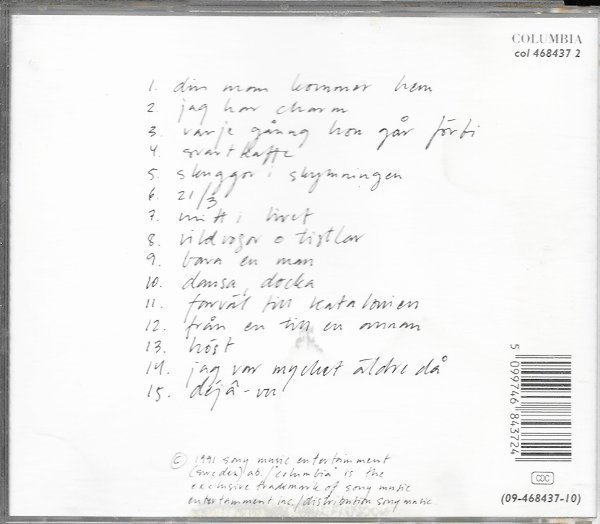 COLUMBIA
col 468437 2
1. din mam kommer hem
2. jag har charm
3. varje gånag hon går förbi
4. svart kaffe
5. skuggor i skymningen
6. 21/3
7. mitt i livet
8. vildrosor o tistlar
9. bara en man
10. dansa, docka
11. farväl till katalonien
12. från en till en annan
13. höst
14. jag var mycket äldre då
15. déjâ-vu
5 099746 843724
© 1991 sony music entertainment
(sweden) ab./"columbia" is the
exclusive trademark of sony music
entertainment inc./distribution sony music
CDC
(09-468437-10)